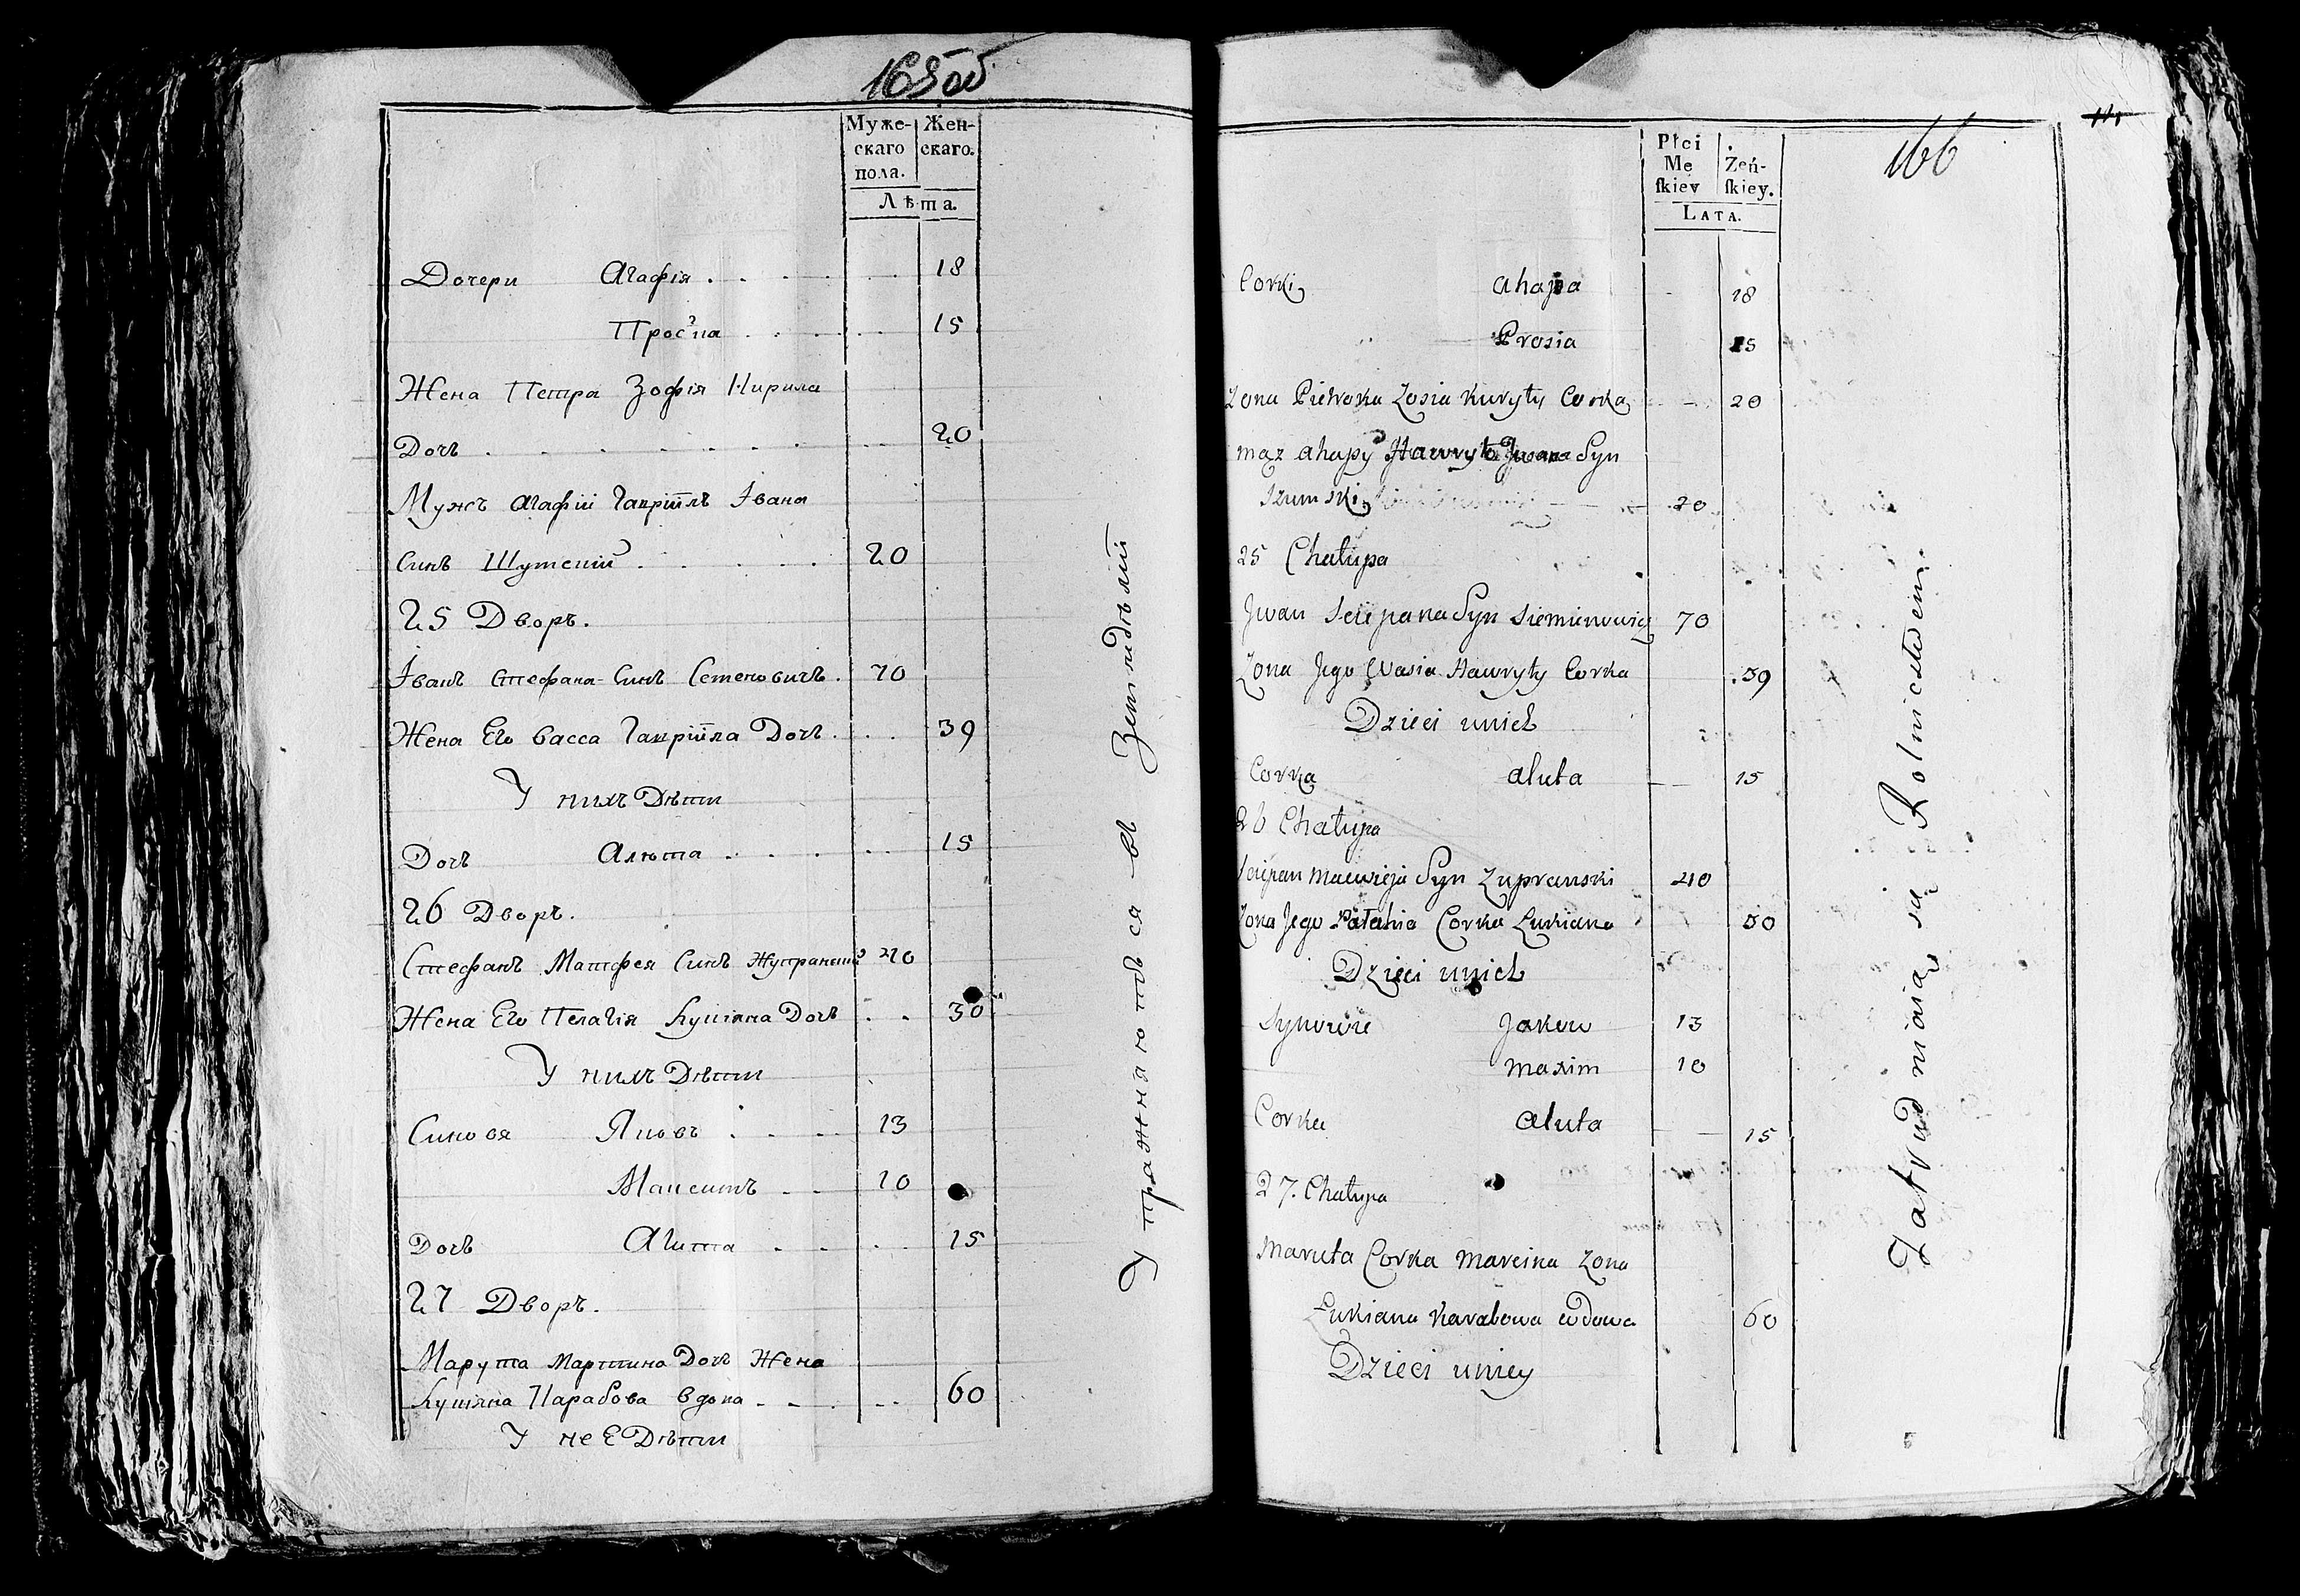 165об
Муже-
скаго
пола.
Жен-
скаго.
Лѣта.
Дочери Агафія 18
Прос 15
Жена Петра Зофія Кирила
Дочь 20
Мужъ Агафіи Гавріилъ Івана
Синъ Шумскій 20
25 Дворъ.
Іванъ Стефана Синъ Семеновичъ. 70
Жена Его Васса Гавріила Дочь. 39
У нихъ Дѣти
Дочь Алюта 15
26 Дворъ.
Стефанъ Матфея Синъ Жупранскій 40
Жена Его Пелагія Лукіяна Дочь 30
У нихъ Дѣти
Синовя Яковъ 13
Максимъ 10
Дочь 15
27 Дворъ.
Марута Мартина Дочь Жена
Лукіяна Карабова Вдова 60
У нее Дѣти
Упражняютъся въ Земледѣліи
166
Płci
Mę
ſkiey
Żeń-
ſkiey.
LATA.
Corki ahapa 18
Prosia 15
Zona Piotroka Zosia Kuryły Corka 20
mąz ahapy Hawryło Jwana Syn
Szumski 20
25 Chałupa
Jwan Sciepana Syn Siemienowicz 70
Zona Jego Wasia Hawryły Corka 39
Dzieci unich
Corka aluta 15
26 Chałupa
Sciepan Macwieja Syn Zupranski 40
Zona Jego Pałahia Corka Łukiana 30
Dzieci unich
Synowie Jakow 13
Maxim 10
Corka aluta 15
27. Chałupa
Maruta Corka Marcina Zona
Łukiana Karabowa wdowa 60
Dzieci uniey
Zatrudniaią się Rolnictwem.